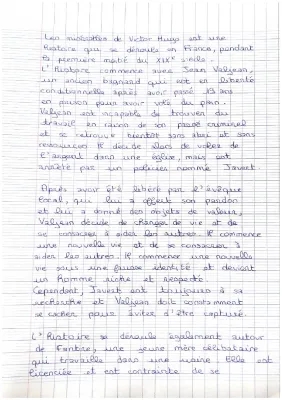 Les misérables de Victor Hugo est une
histoire qui se déroule en France, pendant
la première moitié du XIXe siècle.
L'histoire commence avec Jean Valjean,
un ancien bagnard qui est en liberté
conditionnelle après avoir passé 19 ans
en prison pour avoir volé du pain.
Valjean est incapable de trouver du
travail en raison de son passé criminel
et se retrouve bientôt sans abri et sans
ressources. Il décide alors de voler de
l'argent dans une église, mais est
arrêté par un policier nommé Javert.
Après avoir été libéré par l'évêque
local, qui lui a offert son pardon
et lui a donné des objets de valeur,
Valjean décide de changer de vie et de
se consacrer à aider les autres. Il commence
une nouvelle vie et de se consacrer à
aider les autres. Il commence une nouvelle
vie sous une fausse identité et devient
un homme riche et respecté.
Cependant, Javert est toujours à sa
recherche et Valjean doit constamment
se cacher pour éviter d'être capturé.
L'histoire se déroule également autour
de Fantine, une jeune mère célibataire
qui travaille dans une usine. Elle est
licenciée et est contrainte de se